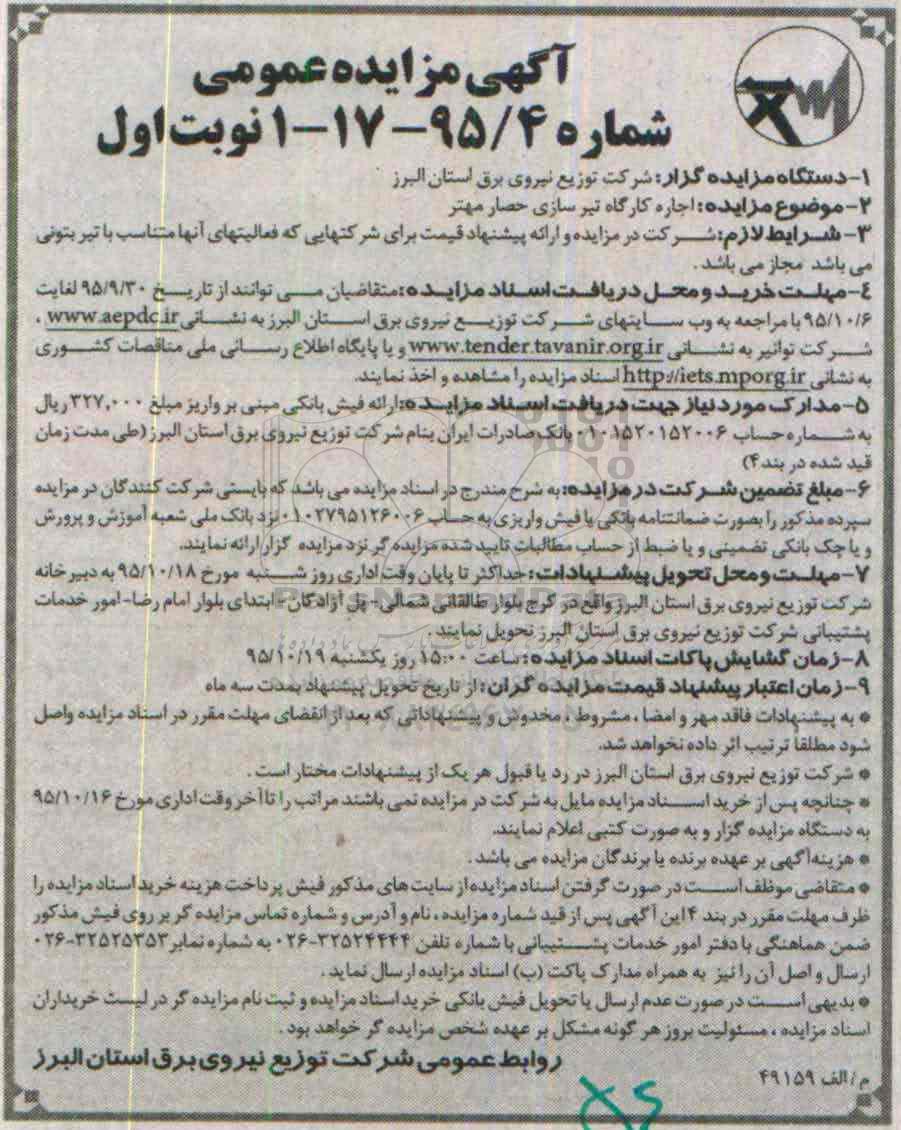 آگهی مزایده عمومی
شماره ۹۵/۴-۱۷-۱ نوبت اول
۱-دستگاه مزایده گزار: شرکت توزیع نیروی برق استان البرز
۲-موضوع مزایده: اجاره کارگاه تیر سازی حصار مهتر
۳-شرایط لازم: شرکت در مزایده و ارائه پیشنهاد قیمت برای شرکتهایی که فعالیتهای آنها متناسب با تیر بتونی
می باشد مجاز می باشد.
٤-مهلت خرید و محل دریافت اسناد مزایده: متقاضیان می توانند از تاریخ ۹۵/۹/۳۰ لغایت
۹۵/۱۰/۶ با مراجعه به وب سایتهای شرکت توزیع نیروی برق استان البرز به نشانی www.aepdc.ir ،
شرکت توانیر به نشانی www.tender.tavanir.org.ir و یا پایگاه اطلاع رسانی ملی مناقصات کشوری
به نشانی http://iets.mporg.ir اسناد مزایده را مشاهده و اخذ نمایند.
۵-مدارک مورد نیاز جهت دریافت اسناد مزایده: ارائه فیش بانکی مبنی بر واریز مبلغ ۳۲۷,۰۰۰ ریال
به شماره حساب ۰۱۰۱۵۲۰۱۵۲۰۰۶ بانک صادرات ایران بنام شرکت توزیع نیروی برق استان البرز (طی مدت زمان
قید شده در بند ۴)
۶-مبلغ تضمین شرکت در مزایده: به شرح مندرج در اسناد مزایده می باشد که بایستی شرکت کنندگان در مزایده
سپرده مذکور را بصورت ضمانتنامه بانکی یا فیش واریزی به حساب ۰۱۰۲۷۹۵۱۲۶۰۰۶ نزد بانک ملی شعبه آموزش و پرورش
و یا چک بانکی تضمینی و یا ضبط از حساب مطالبات تایید شده مزایده گر نزد مزایده گزار ارائه نمایند.
۷-مهلت و محل تحویل پیشنهادات: حداکثر تا پایان وقت اداری روز شنبه مورخ ۹۵/۱۰/۱۸ به دبیرخانه
شرکت توزیع نیروی برق استان البرز واقع در کرج بلوار طالقانی شمالی- پل آزادگان- ابتدای بلوار امام رضا- امور خدمات
پشتیبانی شرکت توزیع نیروی برق استان البرز تحویل نمایند.
۸-زمان گشایش پاکات اسناد مزایده: ساعت ۱۵:۰۰ روز یکشنبه ۹۵/۱۰/۱۹
۹-زمان اعتبار پیشنهاد قیمت مزایده گران: از تاریخ تحویل پیشنهاد بمدت سه ماه
* به پیشنهادات فاقد مهر و امضا، مشروط، مخدوش و پیشنهاداتی که بعد از انقضای مهلت مقرر در اسناد مزایده واصل
شود مطلقا ترتیب اثر داده نخواهد شد.
* شرکت توزیع نیروی برق استان البرز در رد یا قبول هر یک از پیشنهادات مختار است.
* چنانچه پس از خرید اسناد مزایده مایل به شرکت در مزایده نمی باشند مراتب را تا آخر وقت اداری مورخ ۹۵/۱۰/۱۶
به دستگاه مزایده گزار و به صورت کتبی اعلام نمایند.
* هزینه آگهی بر عهده برنده یا برندگان مزایده می باشد.
* متقاضی موظف است در صورت گرفتن اسناد مزایده از سایت های مذکور فیش پرداخت هزینه خرید اسناد مزایده را
ظرف مهلت مقرر در بند ۴ این آگهی پس از قید شماره مزایده، نام و آدرس و شماره تماس مزایده گر بر روی فیش مذکور
ضمن هماهنگی با دفتر امور خدمات پشتیبانی با شماره تلفن ۳۲۵۲۴۴۴۴-۰۲۶ به شماره نمابر ۳۲۵۲۵۳۵۳-۰۲۶
ارسال و اصل آن را نیز به همراه مدارک پاکت (ب) اسناد مزایده ارسال نماید.
* بدیهی است در صورت عدم ارسال یا تحویل فیش بانکی خرید اسناد مزایده و ثبت نام مزایده گر در لیست خریداران
اسناد مزایده، مسئولیت بروز هر گونه مشکل بر عهده شخص مزایده گر خواهد بود.
روابط عمومی شرکت توزیع نیروی برق استان البرز
م/الف ۴۹۱۵۹